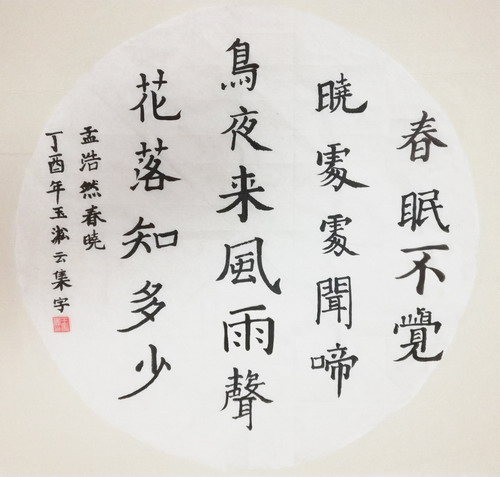 春眠不覺
曉處處聞啼
鳥夜来風雨聲
花落知多少
孟浩然春曉
丁酉年玉淞云集字